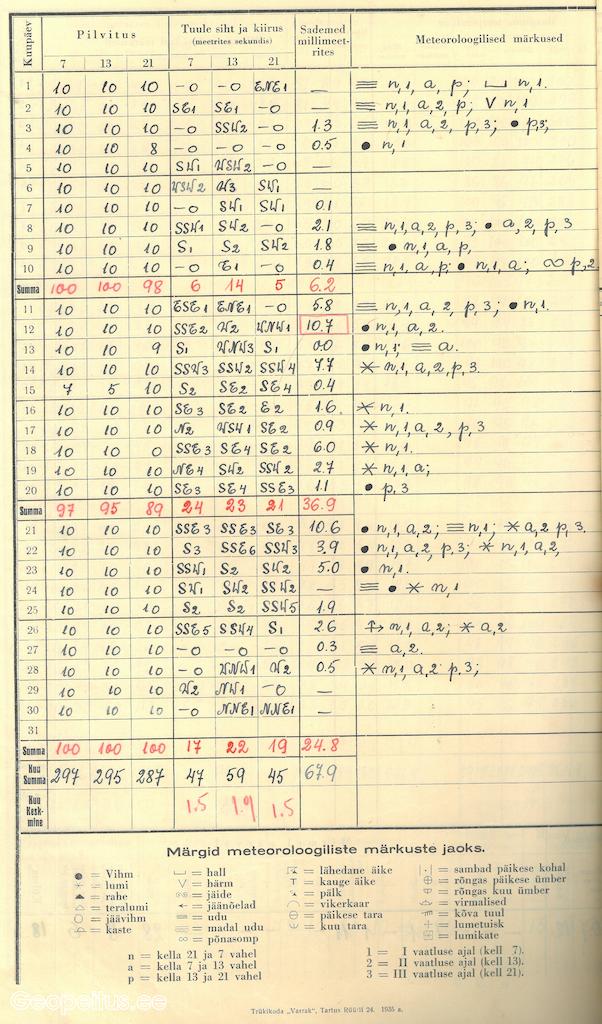 Kuupäev Pilvitus Tuule siht ja kiirus (meetrites sekundis) Sademed millimeetrites Meteoroloogilised märkused
7 13 21 7 13 21
1 10 10 10 –0 –0 ENE1 — ≡ n, 1, a, p; ⌴ n, 1.
2 10 10 10 SE1 SE1 –0 — ≡ n, 1, a, 2, p; V n, 1
3 10 10 10 –0 SSW2 –0 1.3 ≡ n, 1, a, 2, p, 3; ● p, 3;
4 10 10 8 –0 –0 –0 0.5 ● n, 1
5 10 10 10 SW1 WSW2 –0 —
6 10 10 10 WSW2 W3 SW1 —
7 10 10 10 –0 SW1 SW1 0.1
8 10 10 10 SSW1 SW2 –0 2.1 ≡ n, 1, a, 2, p, 3; ● a, 2, p, 3
9 10 10 10 S1 S2 SW2 1.8 ≡ ● n, 1, a, p,
10 10 10 10 –0 E1 –0 0.4 ≡ n, 1, a, p; ● n, 1, a; ∞ p, 2.
Summa 100 100 98 6 14 5 6.2
11 10 10 10 ESE1 ENE1 –0 5.8 ≡ n, 1, a, 2, p, 3; ● n, 1.
12 10 10 10 SSE2 W2 WNW1 10.7 ● n, 1, a, 2.
13 10 10 9 S1 WNW3 S1 0.0 ● n, 1; ≡ a.
14 10 10 10 SSW3 SSW2 SSW4 7.7 ✳ n, 1, a, 2, p, 3.
15 7 5 10 S2 SE2 SE4 0.4
16 10 10 10 SE3 SE2 E2 1.6. ✳ n, 1.
17 10 10 10 N2 WSW1 SE2 0.9 ✳ n, 1, a, 2, p, 3
18 10 10 0 SSE3 SE4 SE2 6.0 ✳ n, 1.
19 10 10 10 NE4 SW2 SSW2 2.7 ✳ n, 1, a;
20 10 10 10 SE3 SE4 SSE3 1.1 ● p, 3
Summa 97 95 89 24 23 21 36.9
21 10 10 10 SSE3 SSE3 SE3 10.6 ● n, 1, a, 2; ≡ n, 1; ✳ a, 2, p, 3.
22 10 10 10 S3 SSE6 SSW3 3.9 ● n, 1, a, 2, p, 3; ✳ n, 1, a, 2,
23 10 10 10 SSW1 S2 SW2 5.0 ● n, 1.
24 10 10 10 SW1 SW2 SSW2 — ≡ ● ✳ n, 1
25 10 10 10 S2 S2 SSW5 1.9
26 10 10 10 SSE5 SSW4 S1 2.6 n, 1, a, 2; ✳ a, 2
27 10 10 10 –0 –0 –0 0.3 ≡ a, 2.
28 10 10 10 –0 WNW1 W2 0.5 ✳ n, 1, a, 2 p, 3;
29 10 10 10 W2 NW1 –0 —
30 10 10 10 –0 NNE1 NNE1 —
31
Summa 100 100 100 17 22 19 24.8
Kuu Summa 297 295 287 47 59 45 67.9
Kuu Keskmine 1.5 1.9 1.5
Märgid meteoroloogiliste märkuste jaoks.
● = Vihm ⌴ = hall = lähedane äike = sambad päikese kohal
✳ = lumi V = härm T = kauge äike ⊕ = rõngas päikese ümber
▲ = rahe = jäide = pälk = rõngas kuu ümber
△ = teralumi = jäänõelad = vikerkaar = virmalised
= jäävihm ≡ = udu ⊕ = päikese tara = kõva tuul
= kaste = madal udu = kuu tara = lumetuisk
∞ = põnasomp = lumikate
n = kella 21 ja 7 vahel 1 = I vaatluse ajal (kell 7).
a = kella 7 ja 13 vahel 2 = II vaatluse ajal (kell 13).
p = kella 13 ja 21 vahel 3 = III vaatluse ajal (kell 21).
Geopeitus.ee
Trükikoda „Varrak", Tartus Rüütli 24. 1935 a.